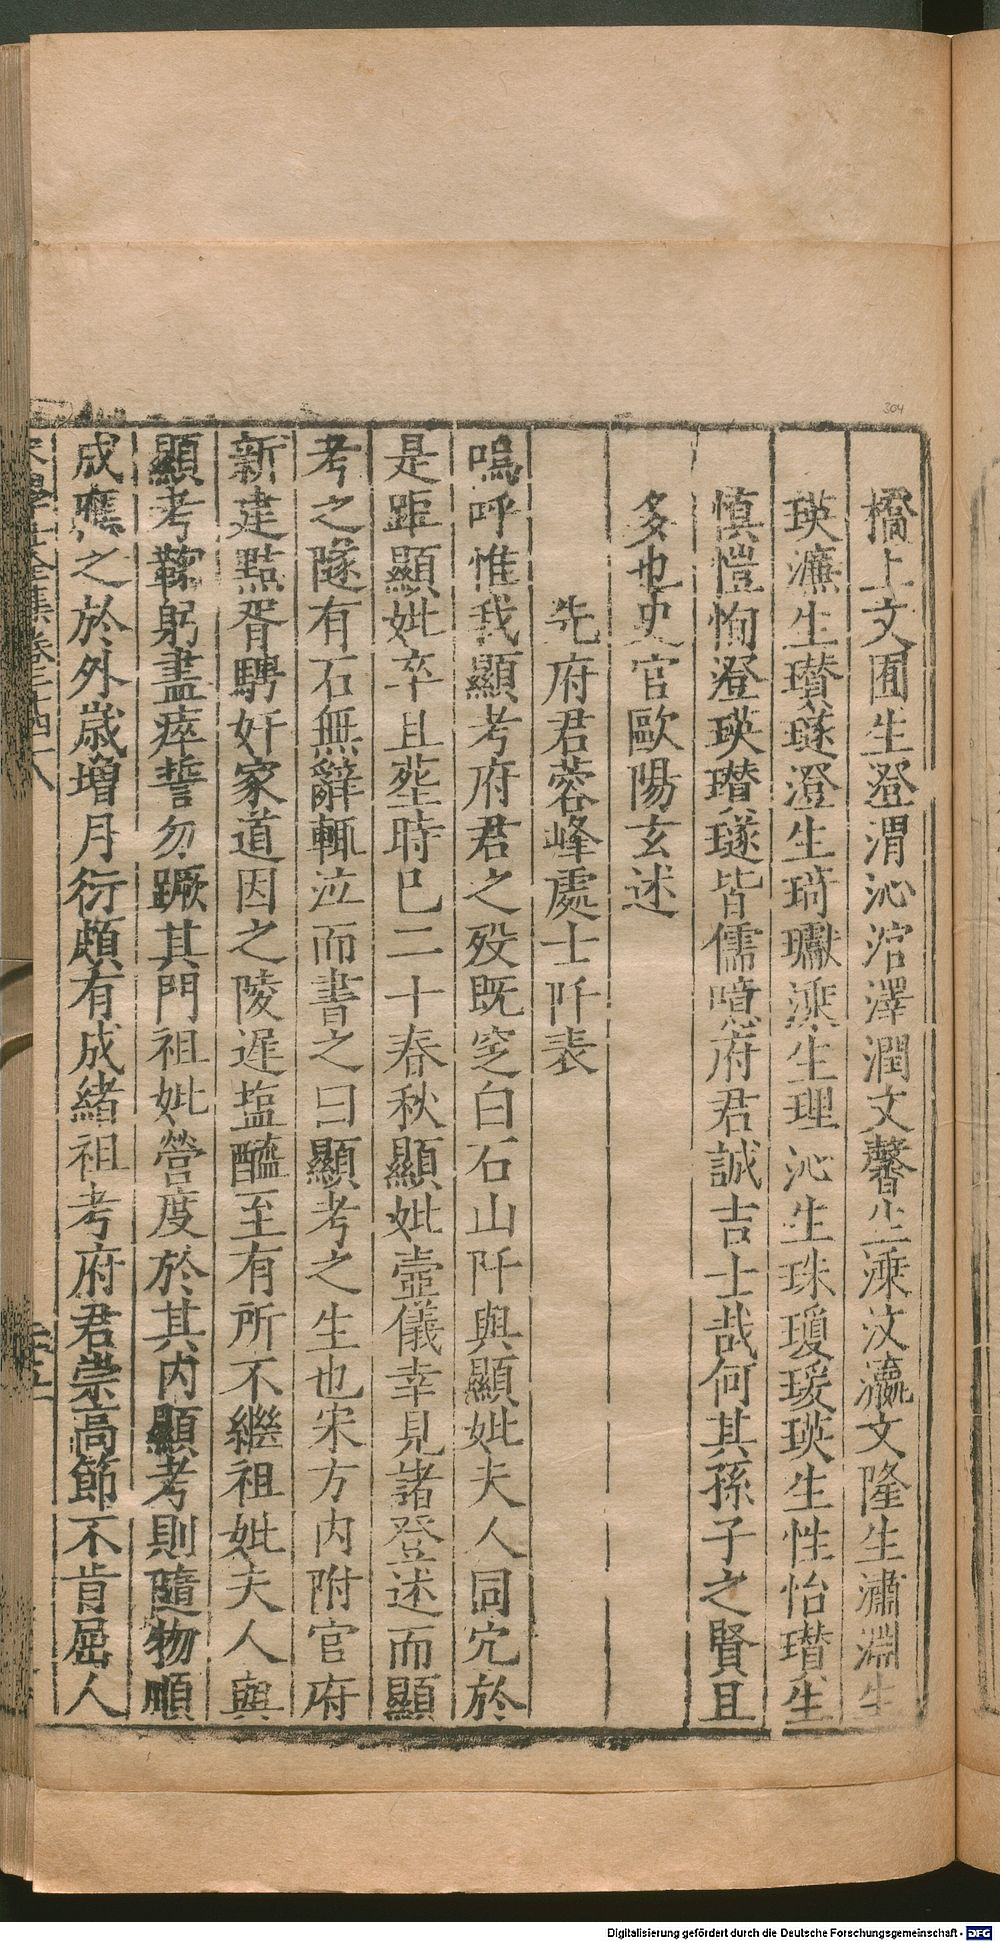 橋上文囿生澄渭沁涫澤潤文馨生溗汶瀛文隆生潚淵生
瑛瀌生瓚璲澄生琦瓛溗生理沁生珠瓊瑗瑛生性怡瓚生
慎愷恂澄瑛瓚璲皆儒噫府君誠吉士哉何其孫子之賢且
多也史官歐陽玄述
先府君蓉峰處士阡表
嗚呼惟我顯考府君之歿既窆白石山阡與顯妣夫人同宂於
是距顯妣卒且塟時已二十春秋顯妣壼儀幸見諸登述而顯
考之隧有石無辭輒泣而書之曰顯考之生也宋方内附官府
新建㸃胥騁奸家道因之陵遲塩醯至有所不繼祖妣夫人與
顯考鞠躬盡瘁誓勿蹶其門祖妣營度於其内顯考則隨物順
成應之於外歳增月衍頗有成緒祖考府君崇高節不肯屈人
宋學士全集卷三十四
304
Digitalisierung gefördert durch die Deutsche Forschungsgemeinschaft - DFG